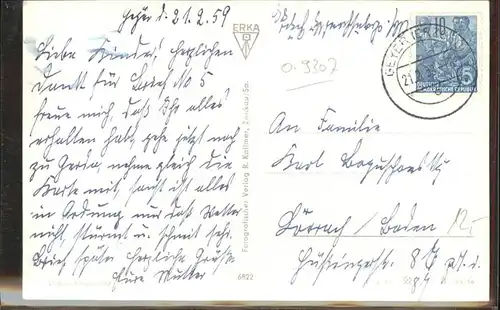 Geyer d. 21.2.59
Liebe Kinder, herzlichen
Dank für Brief No 5
freue mich, daß Ihr alles
erhalten habt, gehe jetzt noch
zu Gerda, nehme gleich die
Karte mit, sonst ist alles
in Ordnung nur das Wetter
nicht, stürmt u. schneit sehr.
Brief später herzliche Grüße
Eure Mutter
ERKA
Fotografischer Verlag R. Kallmer, Zwickau/Sa.
6822
0.9307
GEYER
21.
10
DEUTSCHE
DEMOKRATISCHE REPUBLIK
An Familie
Karl
Lörrach / Baden